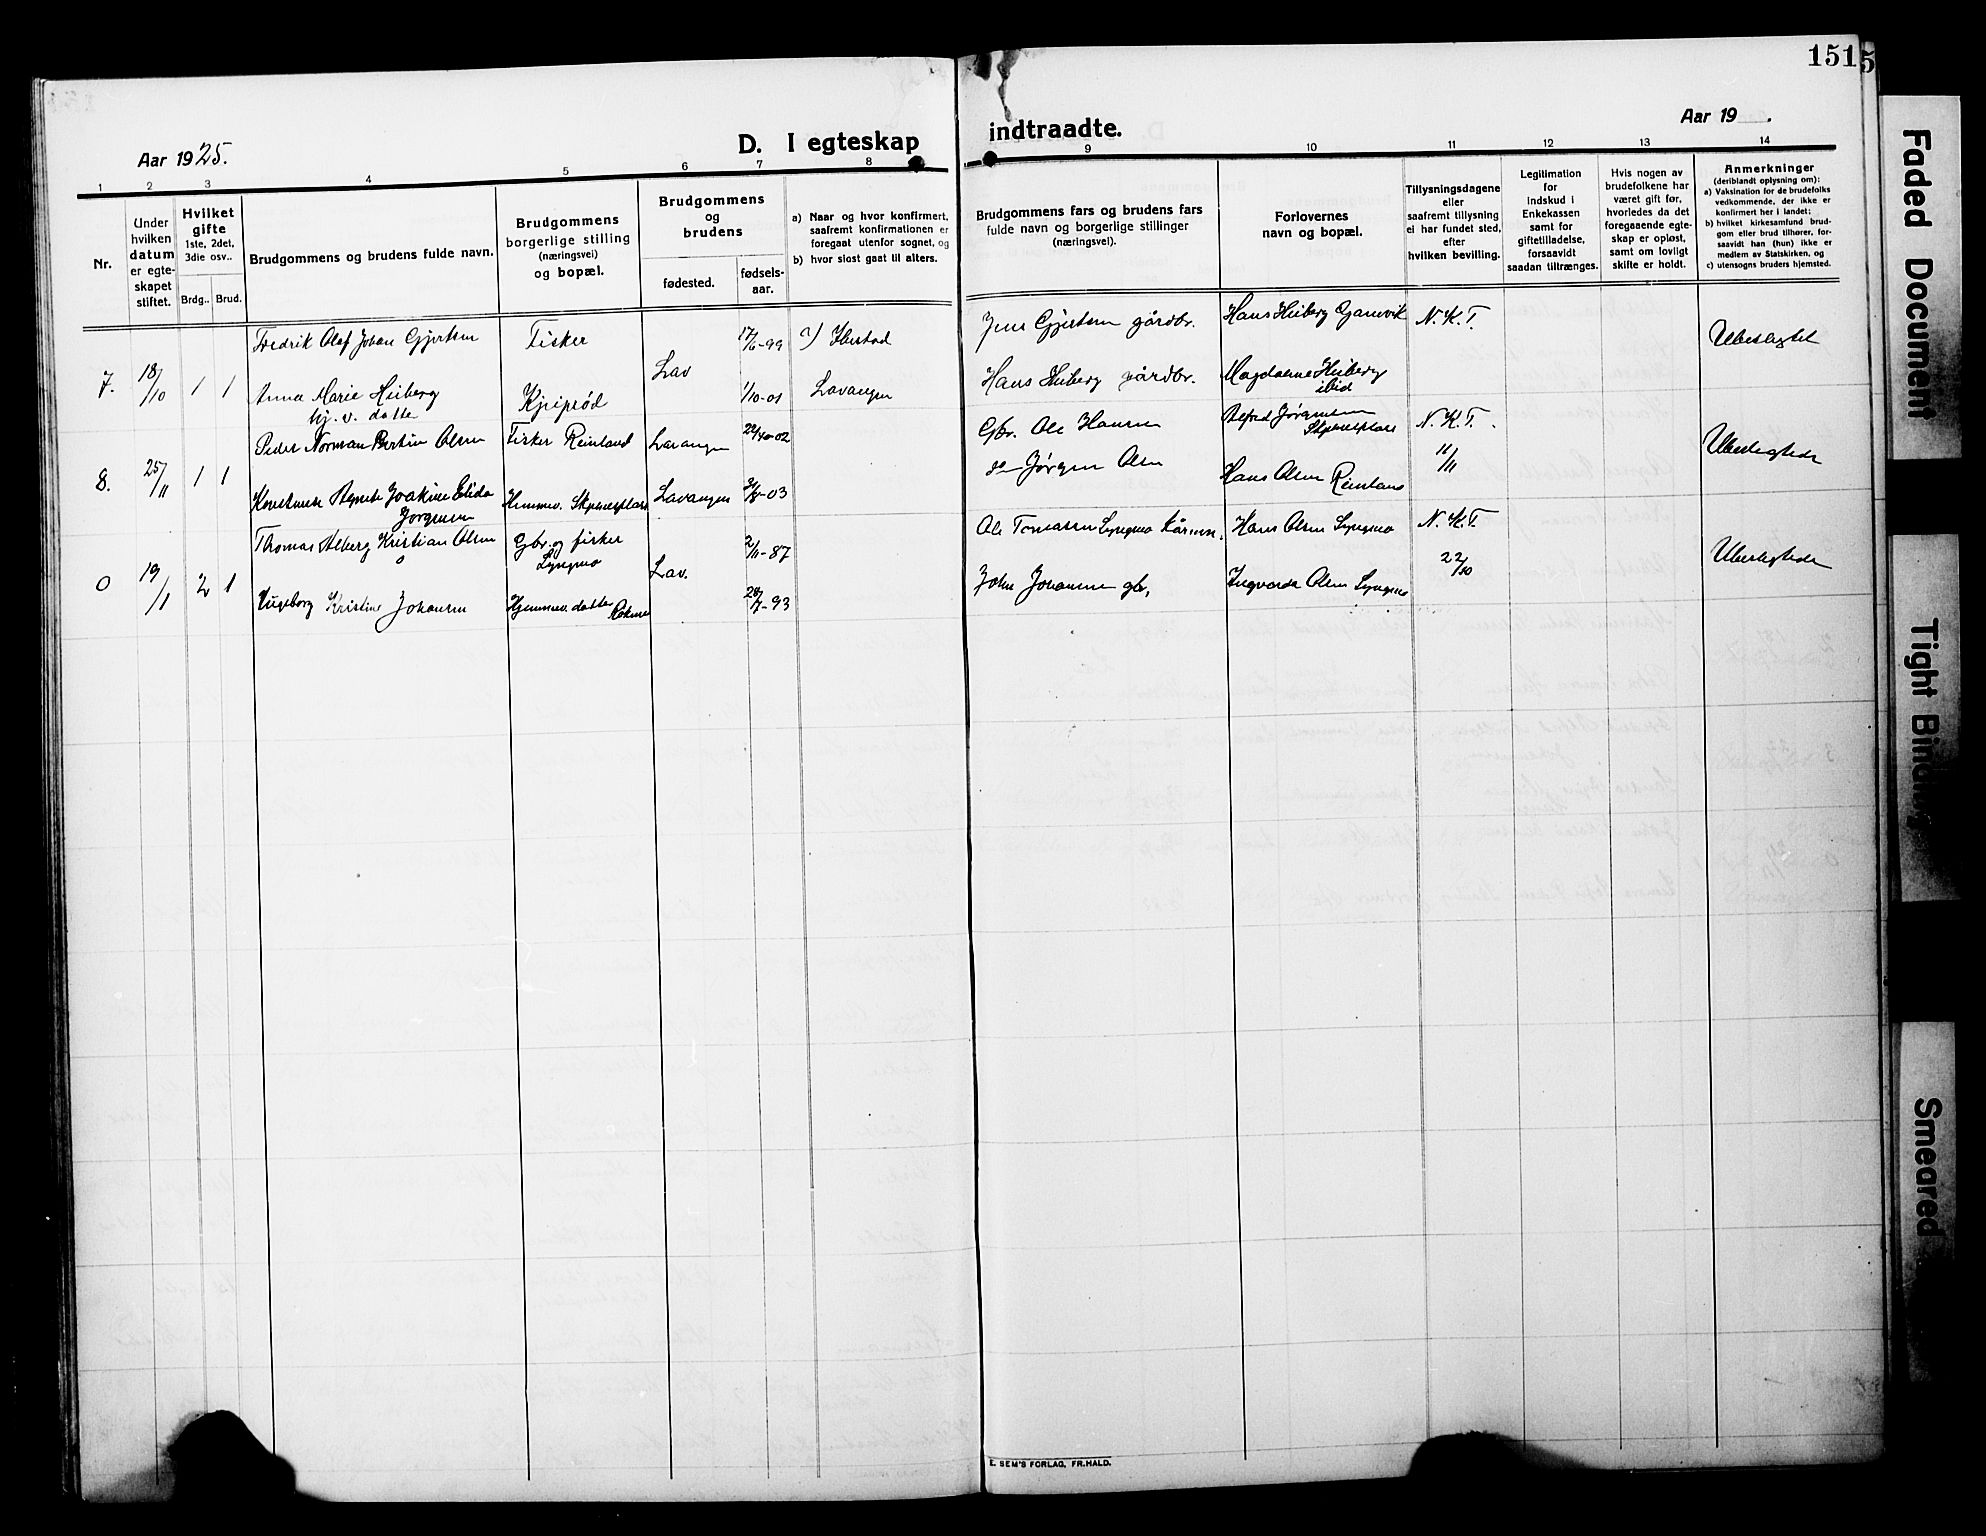 151
5
Aar 1925.
D. I egteskap
indtraadte.
Aar 19 .
1 2 3 4 5 6 7 8
9 10 11 12 13 14
Nr.
Under
hvilken
datum
er egte-
skapet
stiftet.
Hvilket
gifte
1ste, 2det,
3die osv..
Brdg.. Brud.
Brudgommens og brudens fulde navn.
Brudgommens
borgerlige stilling
(næringsvei)
og bopæl.
Brudgommens
og
brudens
fødested.
fødsels-
aar.
a) Naar og hvor konfirmert,
saafremt konfirmationen er
foregaat utenfor sognet, og
b) hvor sidst gaat til alters.
Brudgommens fars og brudens fars
fulde navn og borgerlige stillinger
(næringsvei).
Forlovernes
navn og bopæl.
Tillysningsdagene
eller
saafremt tillysning
ei har fundet sted,
efter
hvilken bevilling.
Legitimation
for
indskud i
Enkekassen
samt for
giftetilladelse,
forsaavidt
saadan tiltrænges.
Hvis nogen av
brudefolkene har
været gift før,
hvorledes da det
foregaaende egte-
skap er opløst,
samt om lovligt
skifte er holdt.
Anmerkninger
(deriblandt oplysning om):
a) Vaksination for de brudefolks
vedkommende, der ikke er
konfirmert her i landet;
b) hvilket kirkesamfund brud-
gom eller brud tilhører, for-
saavidt han (hun) ikke er
medlem av Statskirken, og
c) utensogns bruders hjemsted.
Fredrik Olaf Johan Gjertsen Fisker 17/6-99 a) Ibestad
Jens Gjertsen gårdbr. Hans Heiberg Gamvik N. K. T. Ubeslegtet
7. 18/10 1 1 Lav
Anna Marie Heiberg Kjeiprød 1/10-01 Lavangen
hj. v. datte
Hans Heiberg gårdbr. Magdalene Heiberg
ibid
Peder Norman Bertin Olsen Fisker Reinland Lavangen 02
Gbr. Ole Hansen Alfred Jørgensen N. K. T. Ubeslegtede
8. 25/11 1 1
do Jørgen Olsen Hans Olsen Reinland 11/11
Agnete Joakine Elida Lavangen 03
Jørgensen
Thomas Alberg Kristian Olsen Gbr. og fisker 2/11-87
Ole Tomassen Hans Olsen N. K. T. Ubeslegtede
0 19/1 2 1 Lav. 22/10
Ingeborg Kristine Johansen Hjemmev. datter 93
John Johansen gbr, Ingvarda Olsen
E. SEM'S FORLAG, FR.HALD.
Faded Document
Tight Binding
Smeared